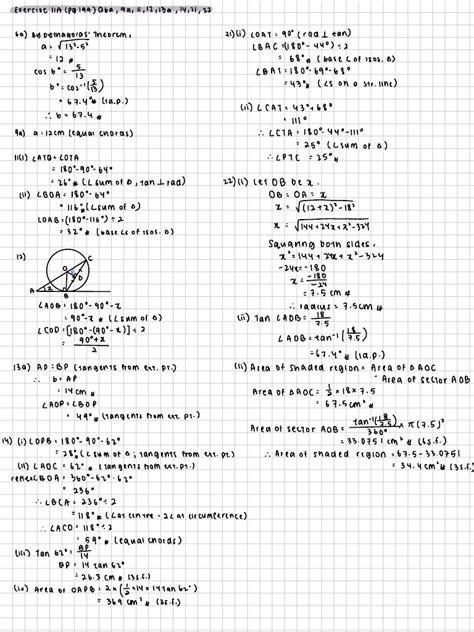 Exercise 11A (pg 199) Q6a, 9a, 11, 12, 13a, 14, 21, 22
6a) By Pythagoras' Theorem,
a = √13²-5²
= 12 #
cos b° = 5/13
b° = cos⁻¹(5/13)
= 67.4° # (1d.p.)
∴ b = 67.4 #
9a) a = 12cm (equal chords)
11(i) ∠ATO = ∠OTA
= 180°-90°-64°
= 26° # (∠sum of Δ, tan ⊥ rad)
(ii) ∠BOA = 180°-64°
= 116° # (∠sum of Δ)
∠OAB = (180°-116°) ÷ 2
= 32° # (base ∠s of isos. Δ)
12)
C
O
D
A
x
B
∠AOB = 180°-90°-x
= 90°-x # (∠sum of Δ)
∠COD = [180°-(90°-x)] ÷ 2
= 90°+x / 2
13a) AP = BP (tangents from ext. pt.)
∴ b = AP
= 14cm #
∠AOP = ∠BOP
= 49° # (tangents from ext. pt.)
14) (i) ∠OPB = 180°-90°-62°
= 28° # (∠sum of Δ ; tangents from ext. pt.)
(ii) ∠AOC = 62° # (tangents from ext. pt.)
reflex ∠BOA = 360°-62°-62°
= 236°
∴ ∠BCA = 236° ÷ 2
= 118° # (∠at centre = 2∠ at circumference)
∴ ∠ACO = 118° ÷ 2
= 59° # (equal chords)
(iii) Tan 62° = BP/14
BP = 14 tan 62°
= 26.3cm # (3s.f.)
(iv) Area of OAPB = 2×(½×14×14tan 62°)
= 369cm² # (3s.f.)
21) (i) ∠OAT = 90° (rad ⊥ tan)
∠BAC = (180°-44°) ÷ 2
= 68° # (base ∠ of isos. Δ)
∠BAT = 180°-69°-68°
= 43° # (∠s on a str. line)
(ii) ∠CAT = 43°+68°
= 111°
∴ ∠CTA = 180°-44°-111°
= 25° (∠sum of Δ)
∴ ∠PTC = 25° #
22) (i) Let OB be x.
OB = OA = x
x = √(12+x)²-18²
x = √144+24x+x²-324
Squaring both sides,
x² = 144+24x+x²-324
-24x = -180
x = -180/-24
= 7.5cm #
∴ radius = 7.5cm #
(ii) Tan ∠AOB = 18/7.5
∠AOB = tan⁻¹(18/7.5)
= 67.4° # (1d.p.)
(ii) Area of shaded region = Area of ΔAOC - Area of sector AOB
Area of ΔAOC = ½×18×7.5
= 67.5cm² #
Area of sector AOB = tan⁻¹(18/7.5)/360° × π(7.5)²
= 33.0751cm² # (6s.f.)
∴ Area of shaded region = 67.5-33.0751
= 34.4cm² # (3s.f.)